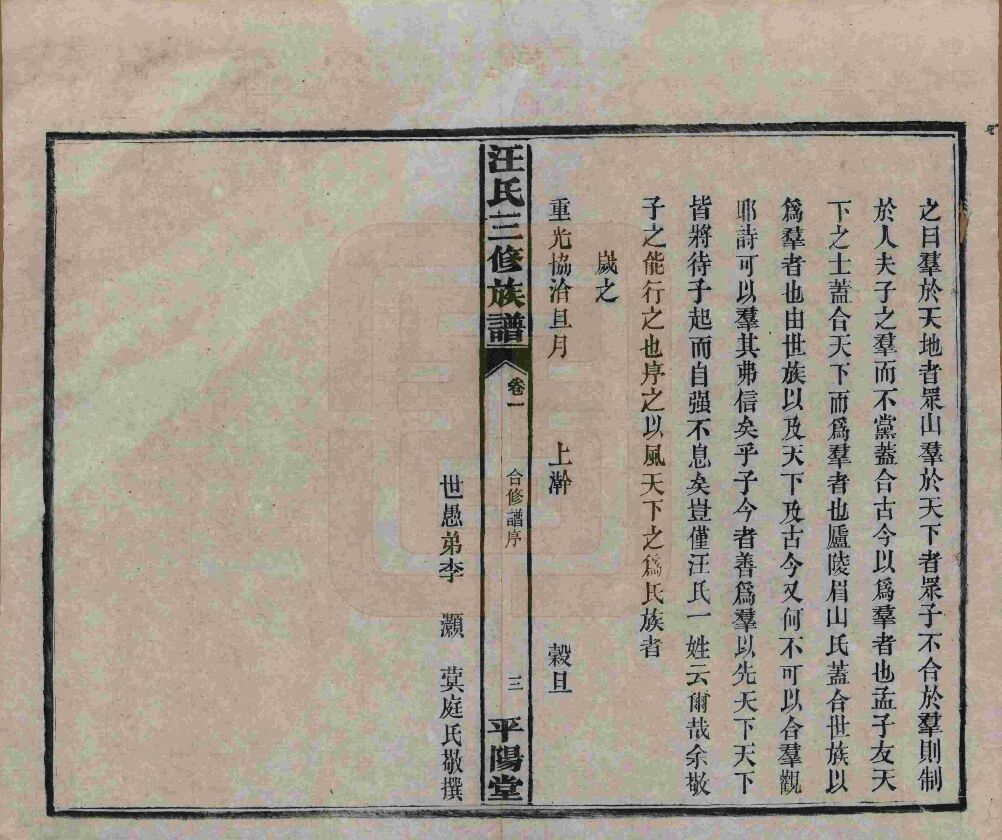 之曰羣於天地者衆山羣於天下者衆子不合於羣則制
於人夫子之羣而不黨蓋合古今以爲羣者也孟子友天
下之士蓋合天下而爲羣者也廬陵眉山氏蓋合世族以
爲羣者也由世族以及天下及古今又何不可以合羣觀
耶詩可以羣其弗信矣乎子今者善爲羣以先天下天下
皆將待子起而自强不息矣豈僅汪氏一姓云爾哉余敬
子之能行之也序之以風天下之爲氏族者
歲之
重光協洽旦月 上澣 穀旦
汪氏三修族譜 卷一 合修譜序 三 平陽堂
世愚弟李 灝 蓂庭氏敬撰